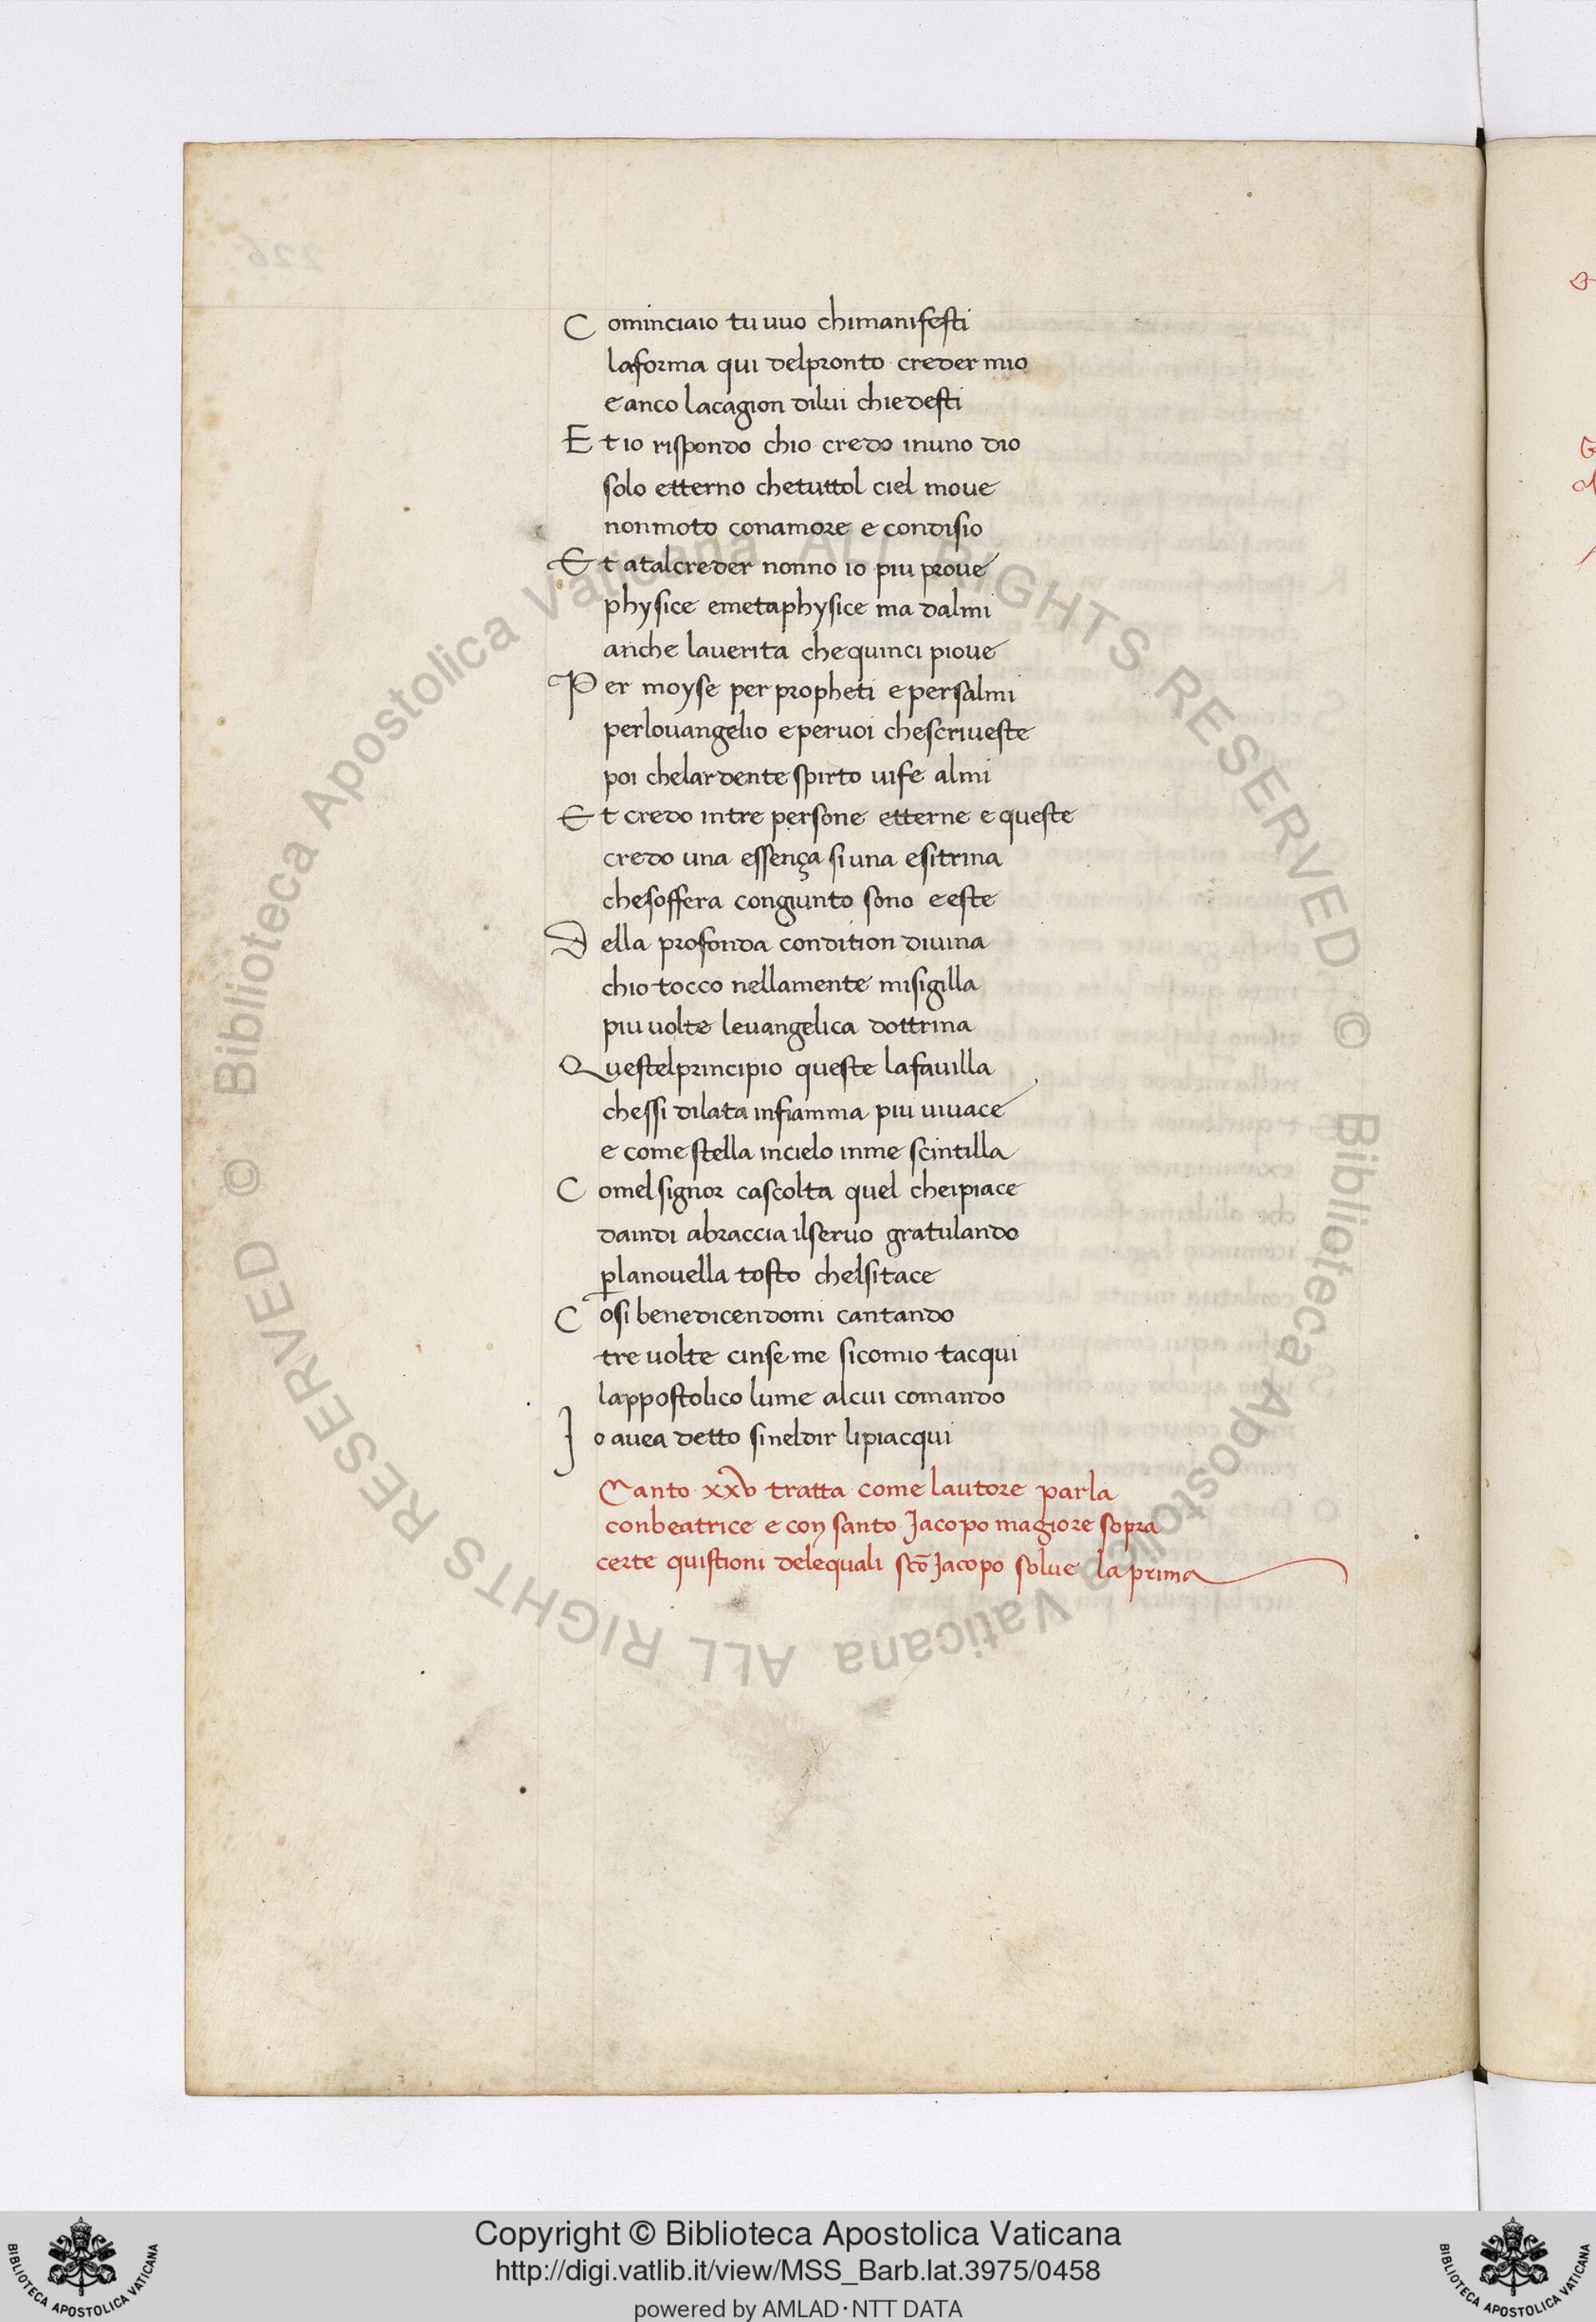 C ominciaio tu uuo chimanifesti
laforma qui delpronto creder mio
e anco lacagion dilui chiedesti
E t io rispondo chio credo inuno dio
solo etterno chetuttol ciel moue
nonmoto conamore e condisio
E t atalcreder nonno io piu proue
physice emetaphysice ma dalmi
anche lauerita chequinci pioue
P er moyse per propheti e persalmi
perlouangelio e peruoi chescriueste
poi chelardente spirto uife almi
E t credo intre persone etterne e queste
credo una essença si una esitrina
chesoffera congiunto sono eeste
D ella profonda condition diuina
chio tocco nellamente misigilla
piu uolte leuangelica dottrina
Q uestelprincipio queste lafauilla
chessi dilata infiamma piu uiuace
e come stella incielo inme scintilla
C omel signor cascolta quel cheipiace
daindi abraccia ilseruo gratulando
planouella tosto chelsitace
C osi benedicendomi cantando
tre uolte cinse me sicomio tacqui
lappostolico lume alcui comando
I o auea detto sineldir lipiacqui
Canto xxv tratta come lautore parla
conbeatrice e con santo Jacopo magiore sopra
certe quistioni delequali sco Jacopo solue la prima
© Biblioteca Apostolica Vaticana ALL RIGHTS RESERVED
© Biblioteca Apostolica Vaticana ALL RIGHTS RESERVED
Copyright © Biblioteca Apostolica Vaticana
http://digi.vatlib.it/view/MSS_Barb.lat.3975/0458
powered by AMLAD·NTT DATA
BIBLIOTECA APOSTOLICA VATICANA
BIBLIOTECA APOSTOLICA VATICANA